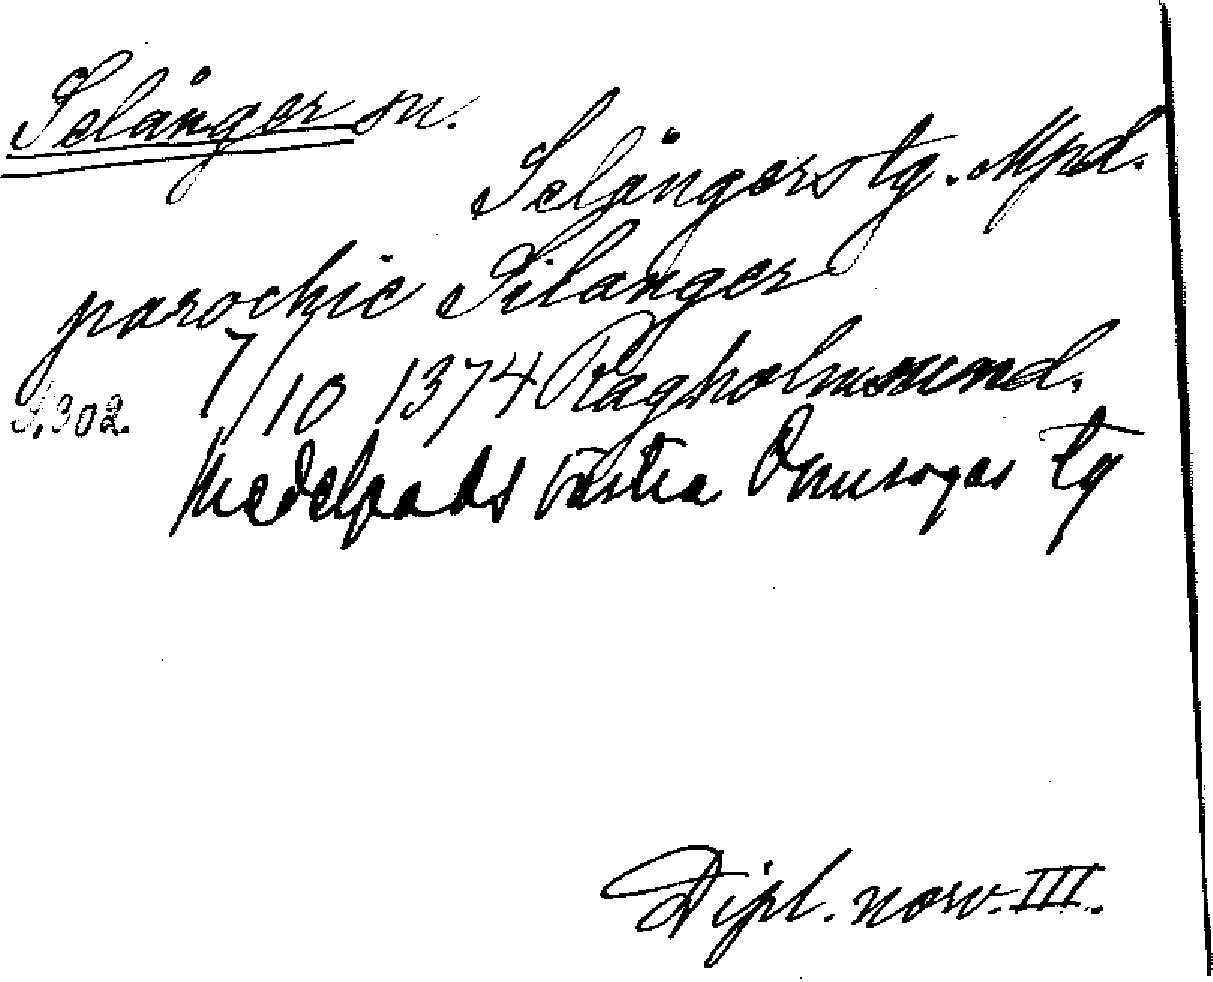 Selånger sn.
Selångers tg. Mpd.
parochie Silanger
S. 302. 7/10 1374 Ragholmsund.
Medelpads Västra Domsagas tg
Dipl. norv. III.